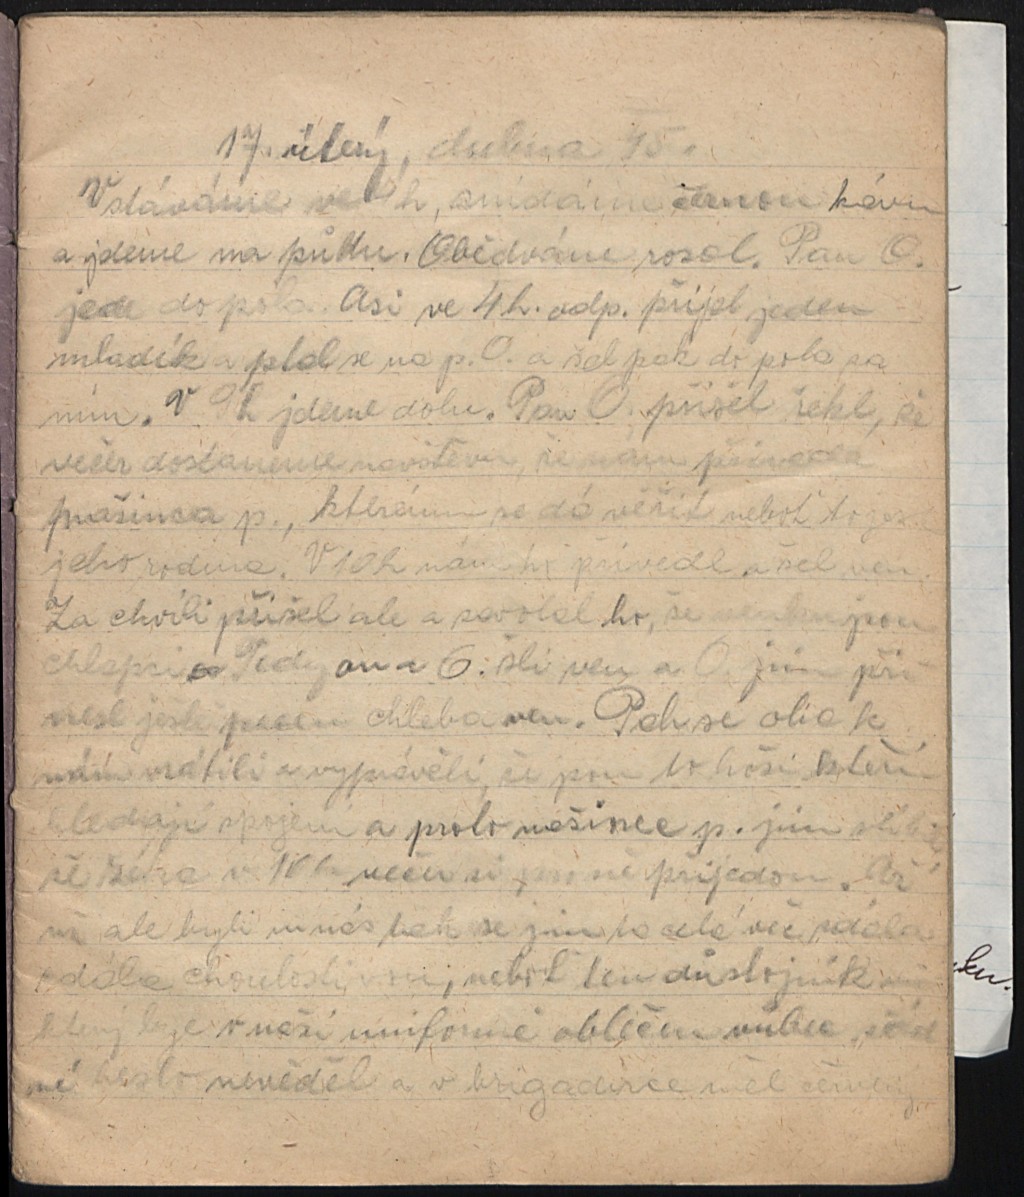 17. úterý, dubna 45.
Vstáváme ve h, snídáme černou kávu
a jdeme na půdu. Obědváme rosol. Pan O.
jede do pola. Asi ve 4 h. odp. přijel jeden
mladík a ptal se na p. O. a šel pak do pola za
ním. V 9 h jdeme dolu. Pan O. přišel řekl, že
večer dostaneme návštěvu, že nám přivede
p., kterému se dá věřit neboť to jest
jeho rodina. V 10 h nám ho přivedl a šel ven.
Za chvíli přišel ale a zavolal ho, že venku jsou
chlapci. Tedy on a O. šli ven a O. jim při
nesl ještě pecen chleba ven. Pak se oba k
nám vrátili a vyprávěli, že jsou to hoši kteří
hledají spojení a proto p. jim slíbil,
že zítra v 10 h večer si pro ně přijedou. Až
už ale byli u nás tak se jim ta celá věc zdála
zdála choulostivou, neboť ten důstojník
který byl v naší uniformě oblečen vůbec žád
né heslo nevěděl a v brigadírce měl červený